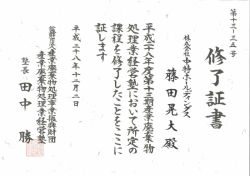 第十三-三五号
修了証書
株式会社中特ホールディングス
藤田晃大殿
平成二十八年度第十三期産業廃棄物
処理業経営塾において所定の
課程を修了したことをここに
証します
平成二十八年十二月二日
公益財団法人産業廃棄物処理事業振興財団
産業廃棄物処理業経営塾
塾長 田中勝